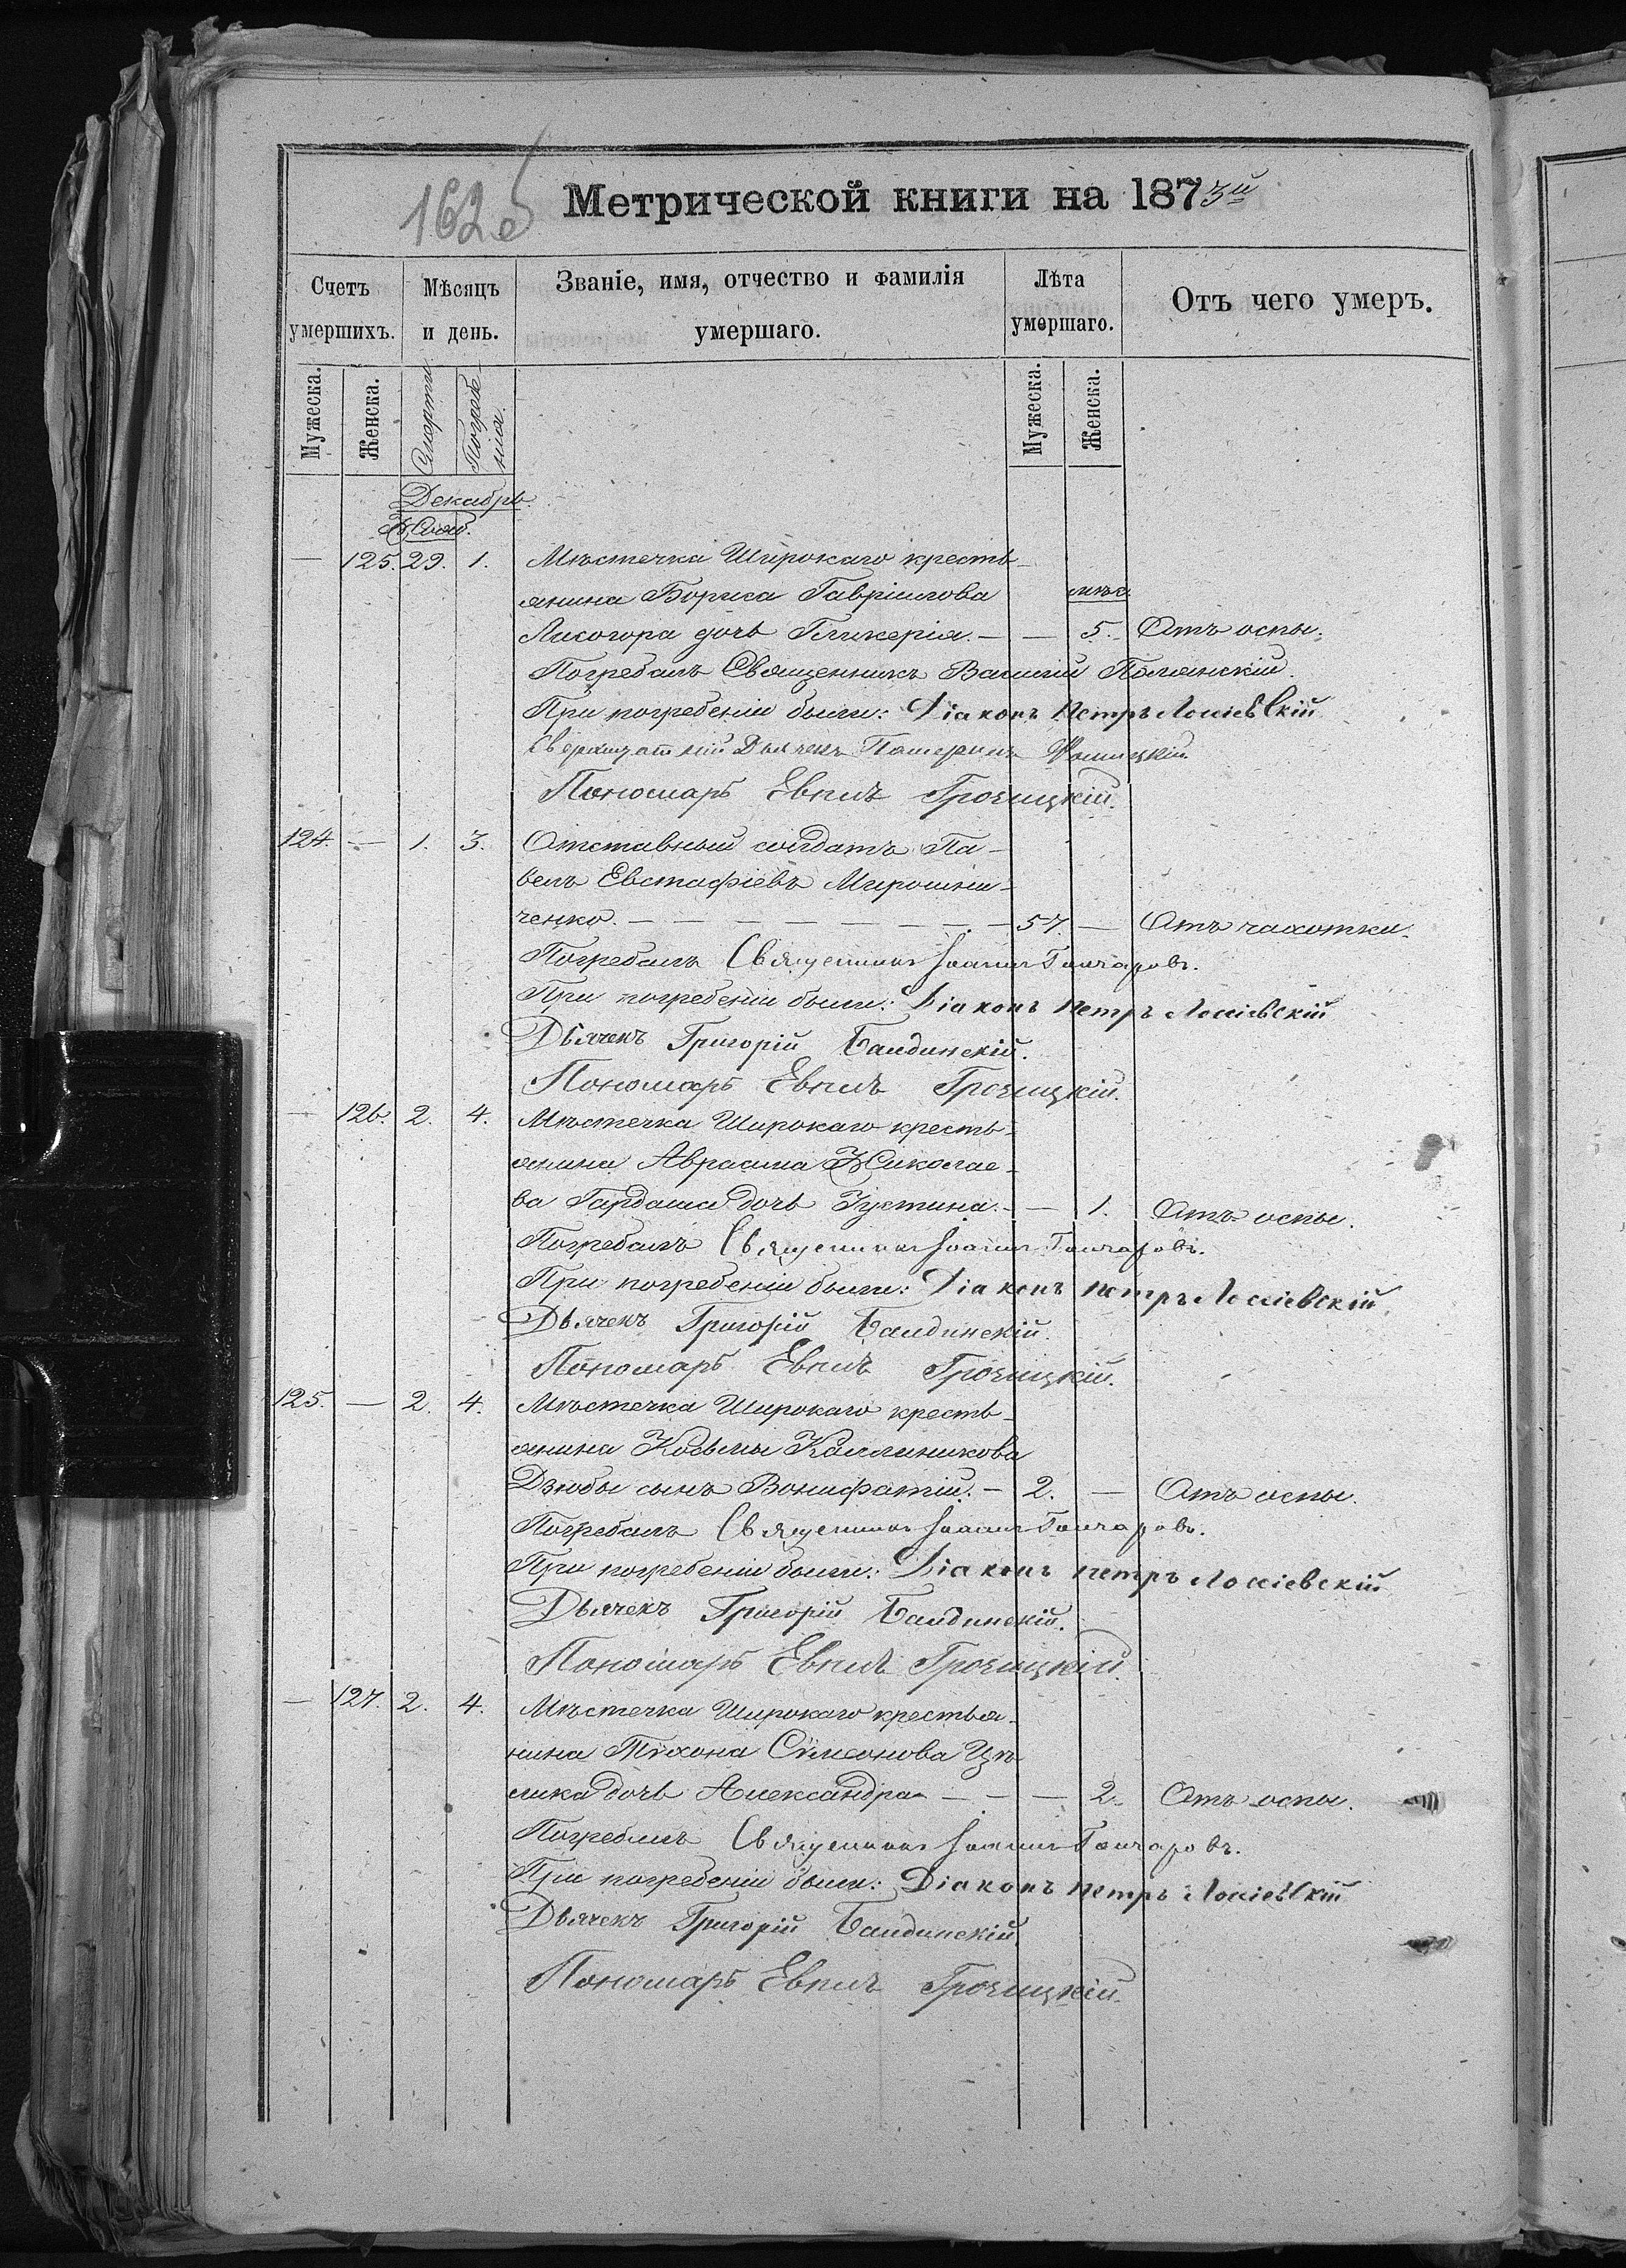 162об
Метрической книги на 1873й
Счетъ умершихъ. Мѣсяцъ и день. Званіе, имя, отчество и фамилія умершаго. Лѣта умершаго. Отъ чего умеръ.
Мужеска. Женска. Смерти Погребенія. Мужеска. Женска.
Декабрь.
Нояб.
— 125. 29. 1. Мѣстечка Широкаго кресть-
янина Бориса Гавріилова мѣс.
Лисогора дочь Гликерія. — — 5. Отъ оспы.
Погребалъ Священникъ Василій Полянскій.
При погребеніи были: Діаконъ Петръ Лоссіевскій
Сверхштатній Дьячекъ
Пономарь Евпл Грочицкій.
124. — 1. 3. Отставный солдатъ Па-
велъ Евстафіевъ Мирошни-
ченко. — — — — — — — 57. — Отъ чахотки.
Погребалъ Священникъ Іоаннъ Гончаровъ.
При погребеніи были: Діаконъ Петръ Лоссіевскій
Дьячекъ Григорій Балдинскій.
Пономарь Евпл Грочицкій.
— 126. 2. 4. Мѣстечка Широкаго кресть-
янина Авраама Николае-
ва Гардаша дочь Іустина. — — 1. Отъ оспы.
Погребалъ Священникъ Іоаннъ Гончаровъ.
При погребеніи были: Діаконъ Петръ Лоссіевскій
Дьячекъ Григорій Балдинскій.
Пономарь Евпл Грочицкій.
125. — 2. 4. Мѣстечка Широкаго кресть-
янина Козьмы Каллиникова
Дзюбы сынъ Вонифатій. — 2. — Отъ оспы.
Погребалъ Священникъ Іоаннъ Гончаровъ.
При погребеніи были: Діаконъ Петръ Лоссіевскій
Дьячекъ Григорій Балдинскій.
Пономарь Евпл Грочицкій.
— 127. 2. 4. Мѣстечка Широкаго крестья-
нина Тихона Сѵмеонова Цѣ-
лика дочь Александра — — — 2. Отъ оспы.
Погребалъ Священникъ Іоаннъ Гончаровъ.
При погребеніи были: Діаконъ Петръ Лоссіевскій
Дьячекъ Григорій Балдинскій
Пономарь Евпл Грочицкій.